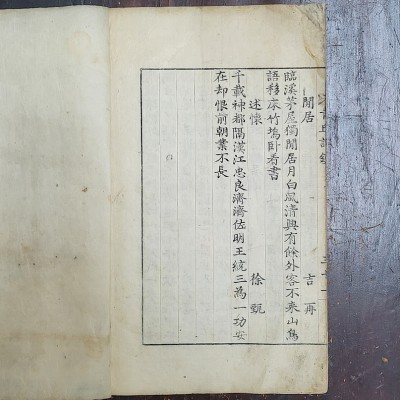 閒居 吉再
臨溪茅屋獨閒居月白風清興有餘外客不來山鳥
語移床竹塢臥看書
述懷 徐甄
千載神都隔漢江忠良濟濟佐明王統三為一功安
在却恨前朝業不長